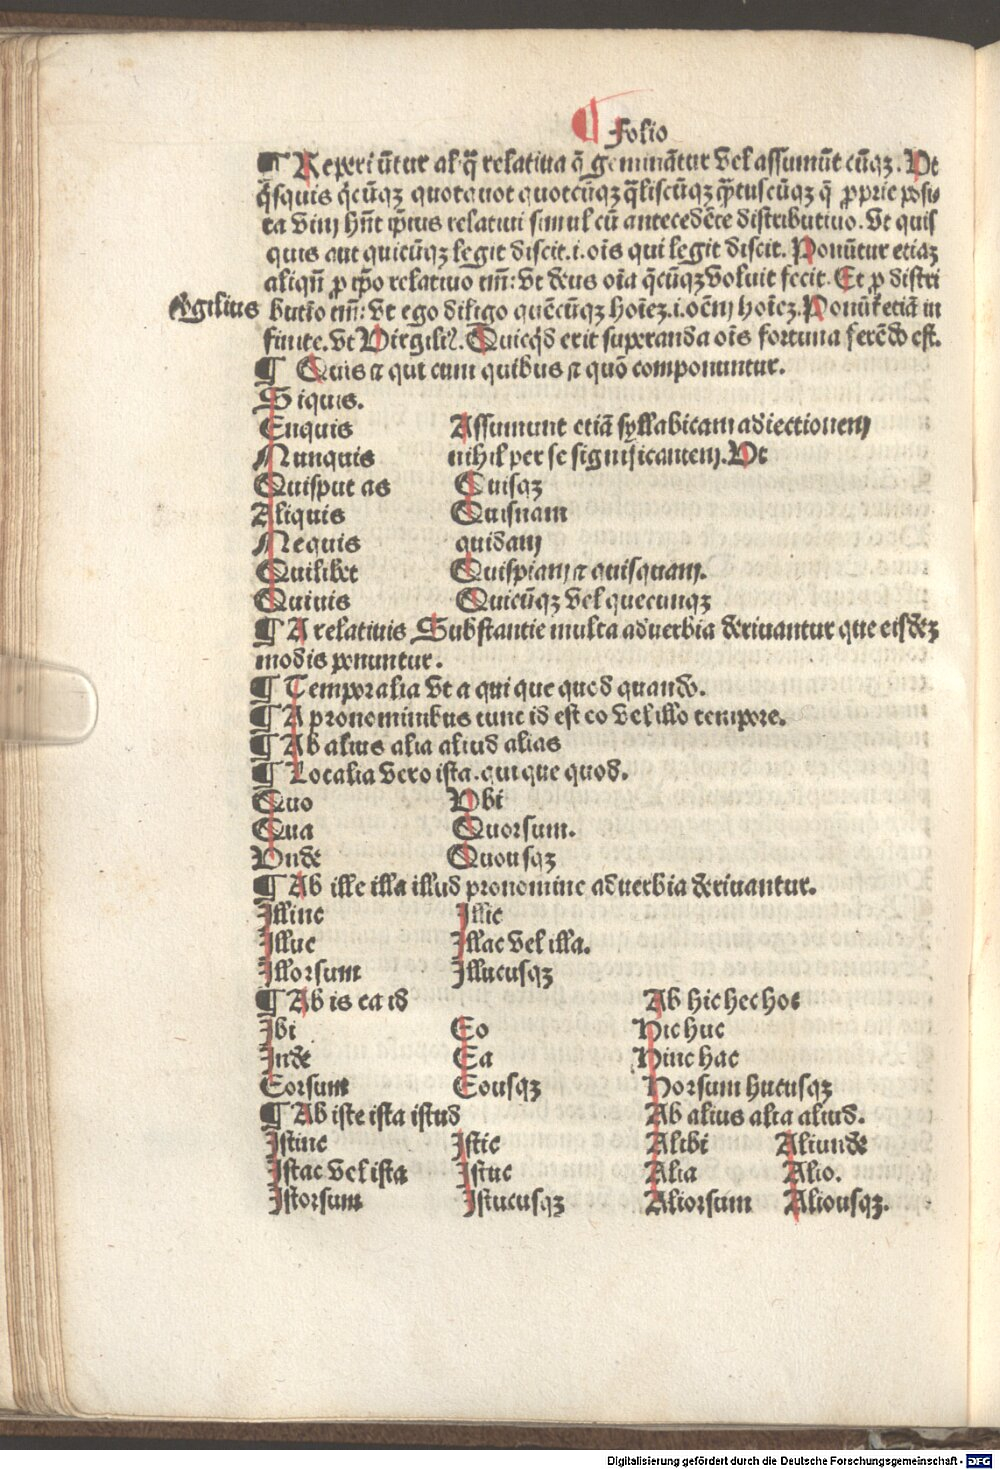 ¶ Folio
¶ Reperiūtur al'q̄ relatiua q̄ geminātur vel assumūt cūqꝫ. Vt
q̄squis q̄cūqꝫ quotquot quotcūqꝫ q̄liscūqꝫ q̄tuscūqꝫ q̄ ꝓprie posi
ta vim hn̄t ip̄ius relatiui simul cū antecedēte distributiuo. Vt quis
quis aut quicūqꝫ legit discit .i. oīs qui legit discit. Ponūtur etiaꝫ
aliqn̄ ꝓ ip̄o relatiuo tm̄: vt deus oīa q̄cūqꝫ voluit fecit. Et ꝓ distri
Virgilius
butiōe tm̄: vt ego diligo quēcūqꝫ hoīeꝫ .i. oēm hoīeꝫ. Ponūt̄ etiā in
finite. vt Virgili⁹. Quicq̄d erit superanda oīs fortuna ferēdo est.
¶ Quis ⁊ qui cum quibus ⁊ quō componuntur.
Siquis.
Enquis Assumunt etiā syllabicam adiectionem
Nunquis nihil per se significantem. Vt
Quisputas Quisqꝫ
Aliquis Quisnam
Nequis quidam
Quilibet Quispiam ⁊ quisquam.
Quiuis Quicūqꝫ vel quecunqꝫ
¶ A relatiuis Substantie multa aduerbia deriuantur que eisdeꝫ
modis ponuntur.
¶ Temporalia vt a qui que quod quando.
¶ A pronominibus tunc id est eo vel illo tempore.
¶ Ab alius alia aliud alias
¶ Localia vero ista. qui que quod.
Quo Vbi
Qua Quorsum.
Vnde Quousqꝫ
¶ Ab ille illa illud pronomine aduerbia deriuantur.
Illinc Illic
Illuc Illac vel illa.
Illorsum Illucusqꝫ
¶ Ab is ea id Ab hic hec hoc
Ibi Eo Hic huc
Inde Ea Hinc hac
Eorsum Eousqꝫ Horsum hucusqꝫ
¶ Ab iste ista istud Ab alius alia aliud.
Istinc Istic Alibi Aliunde
Istac vel ista Istuc Alia Alio.
Istorsum Istucusqꝫ Aliorsum Aliousqꝫ.
Digitalisierung gefördert durch die Deutsche Forschungsgemeinschaft - DFG